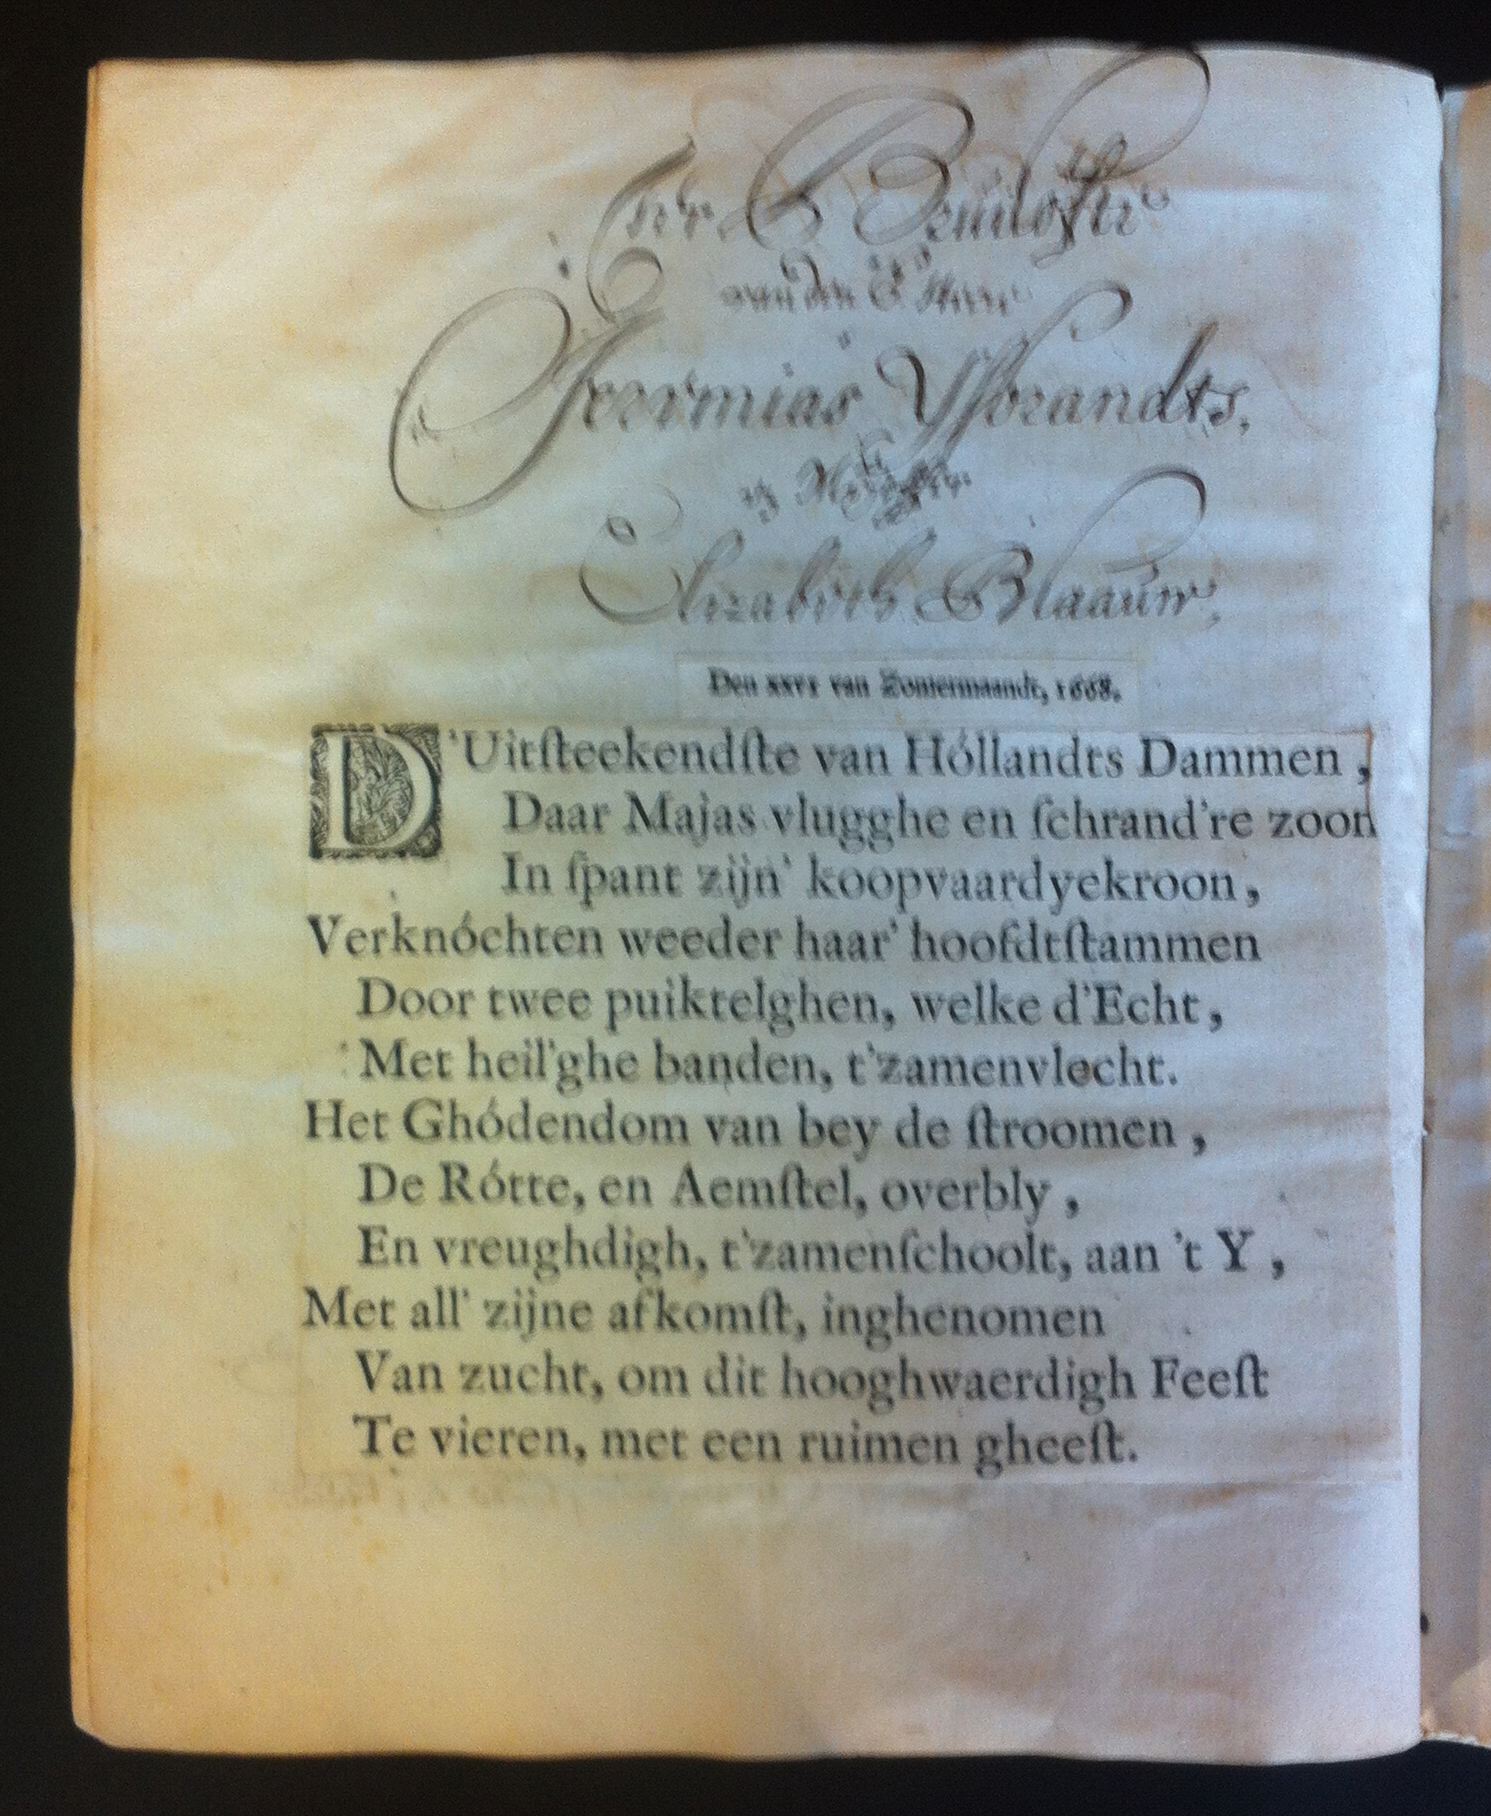 Ter Bruiloft
van den E. Heer
Jeremias Ysbrandts,
Elizabeth Blaauw,
Den XXVI van Zomermaandt, 1668.
D'Uitſteekendſte van Hóllandts Dammen,
Daar Majas vlugghe en ſchrand're zoon
In ſpant zijn' koopvaardyekroon,
Verknóchten weeder haar' hoofdtſtammen
Door twee puiktelghen, welke d'Echt,
Met heil'ghe banden, t'zamenvlecht.
Het Ghódendom van bey de ſtroomen,
De Rótte, en Aemſtel, overbly,
En vreughdigh, t'zamenſchoolt, aan 't Y,
Met all' zijne afkomſt, inghenomen
Van zucht, om dit hooghwaerdigh Feeſt
Te vieren, met een ruimen gheeſt.